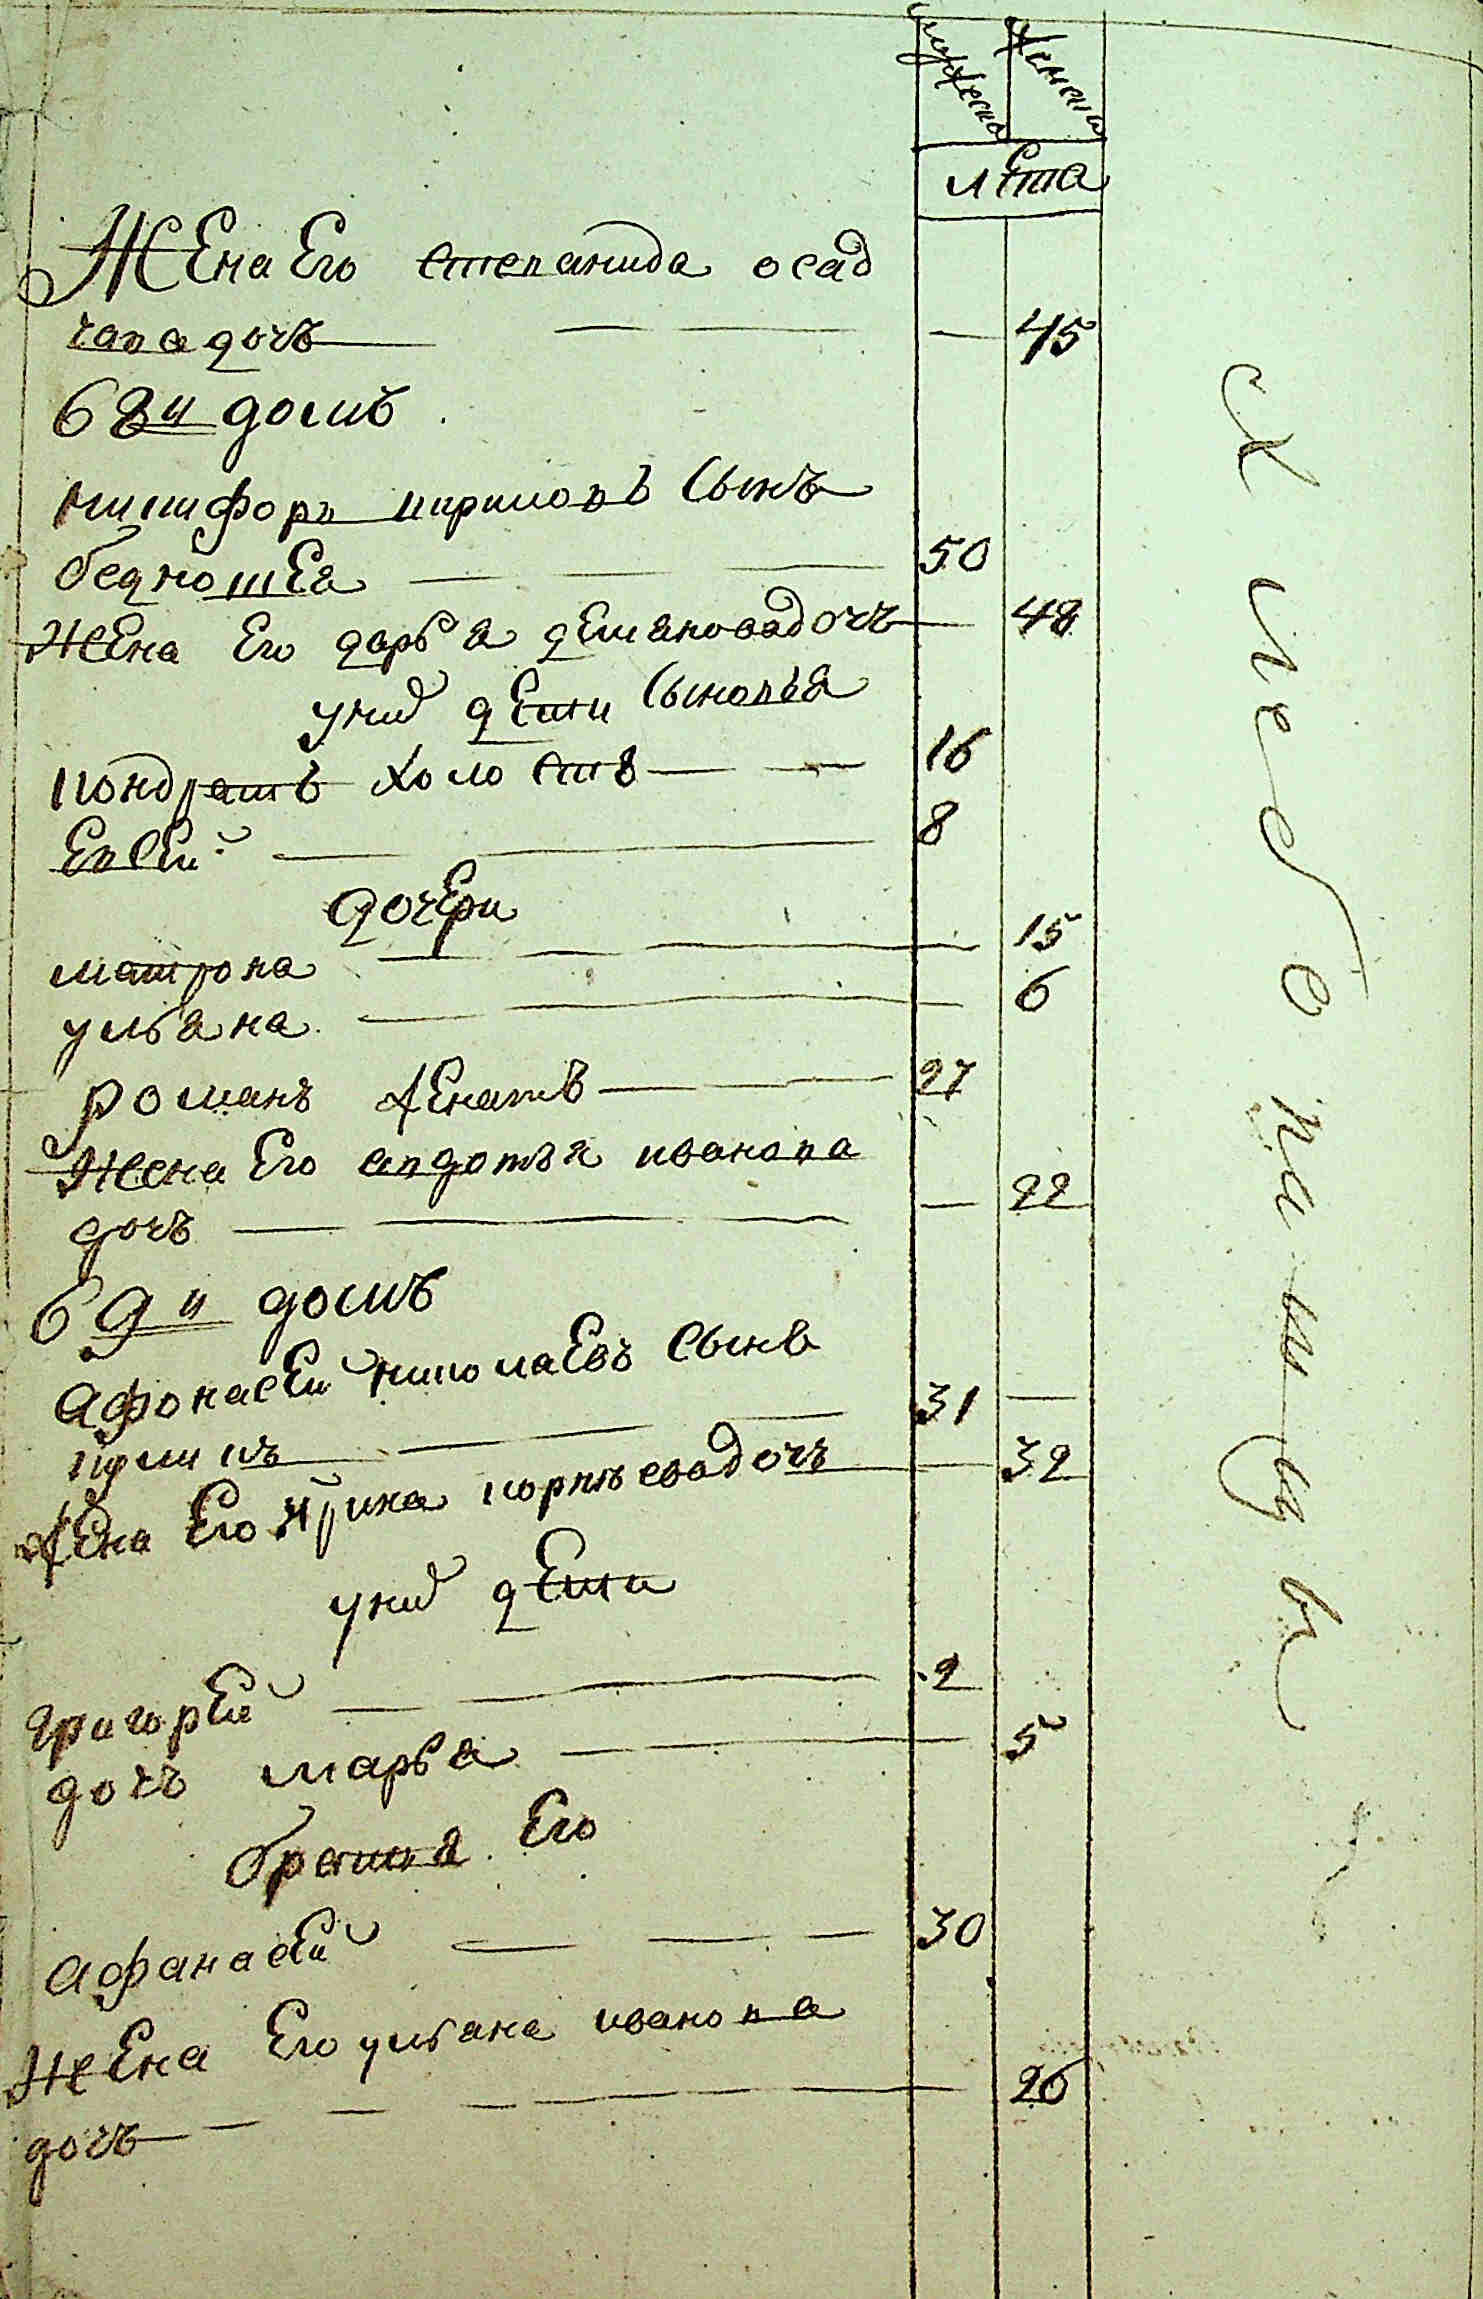 мужеска женска
лета
Жена Его степанида осад
чава дочь — 45
68й домъ
никифоръ кириловъ сынъ
бедношея 50
жена Его дарья демяновадочъ 48
уних дети сыновья
кондратъ холостъ 16
Евсей 8
дочери
матрона 15
ульяна 6
романъ женатъ 27
жена Его авдотья иванова
дочъ — 22
69й домъ
афонасей николаевъ сынъ
31 —
жена Его ирина корнѣевадочъ 32
уних дети
григорей 2
дочъ марья 5
братья Его
афанасей 30
жена Его ульяна иванова
дочъ 26